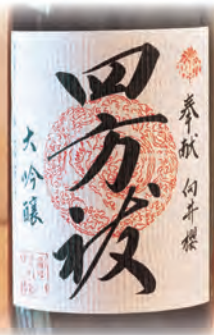 奉献 向井櫻
四方祓
大吟醸